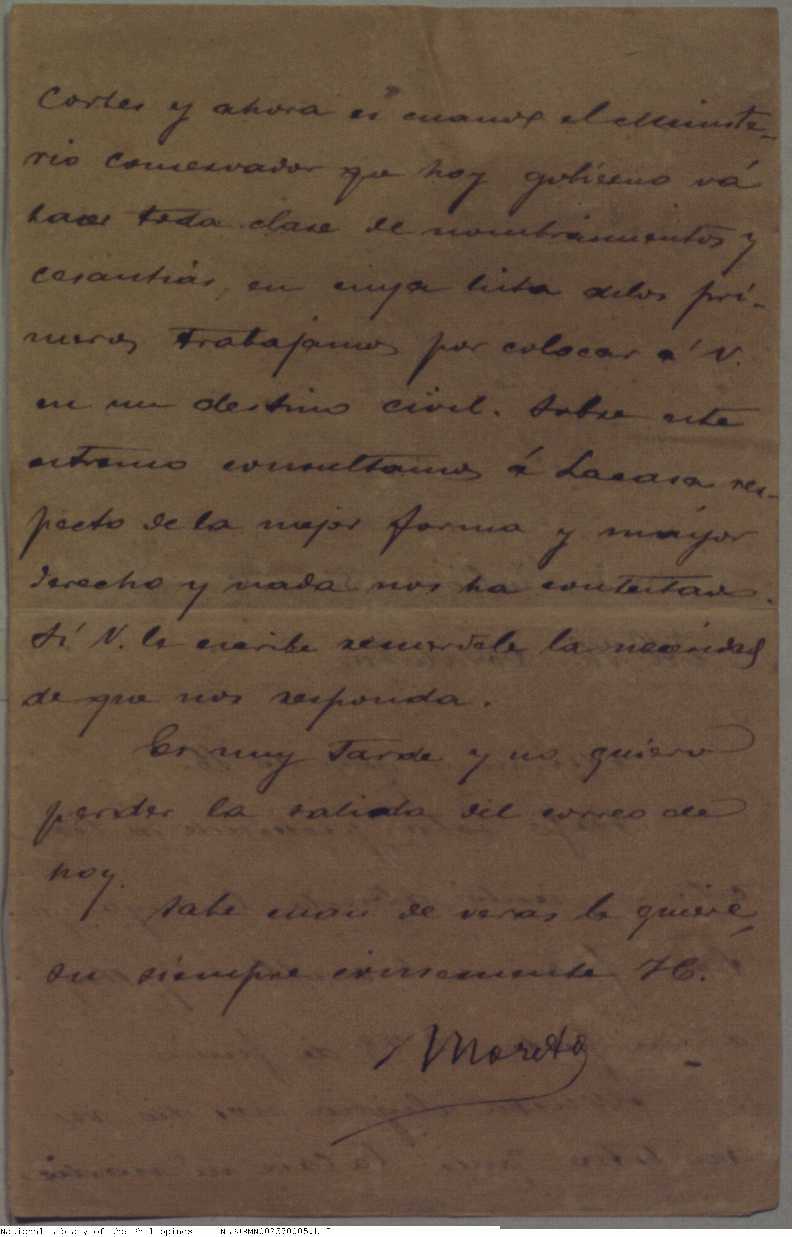 Cortes y ahora es cuando el Ministe-
rio conservador que hoy gobierna vá
hacer toda clase de nombramientos y
cesantias, en cuya lista delos pri-
meros trabajamos por colocar á V.
en un destino civil. Sobre este
estremo consultamos á Lacasa res-
pecto de la mejor forma y mayor
derecho y nada nos ha contestado.
Si V. le escribe recuerdele la necesidad
de que nos responda.
Es muy tarde y no quiero
perder la salida del correo de
hoy.
Sabe cuan de veras le quiere,
su siempre consecuente H∴
Morete
National Library of the Philippines